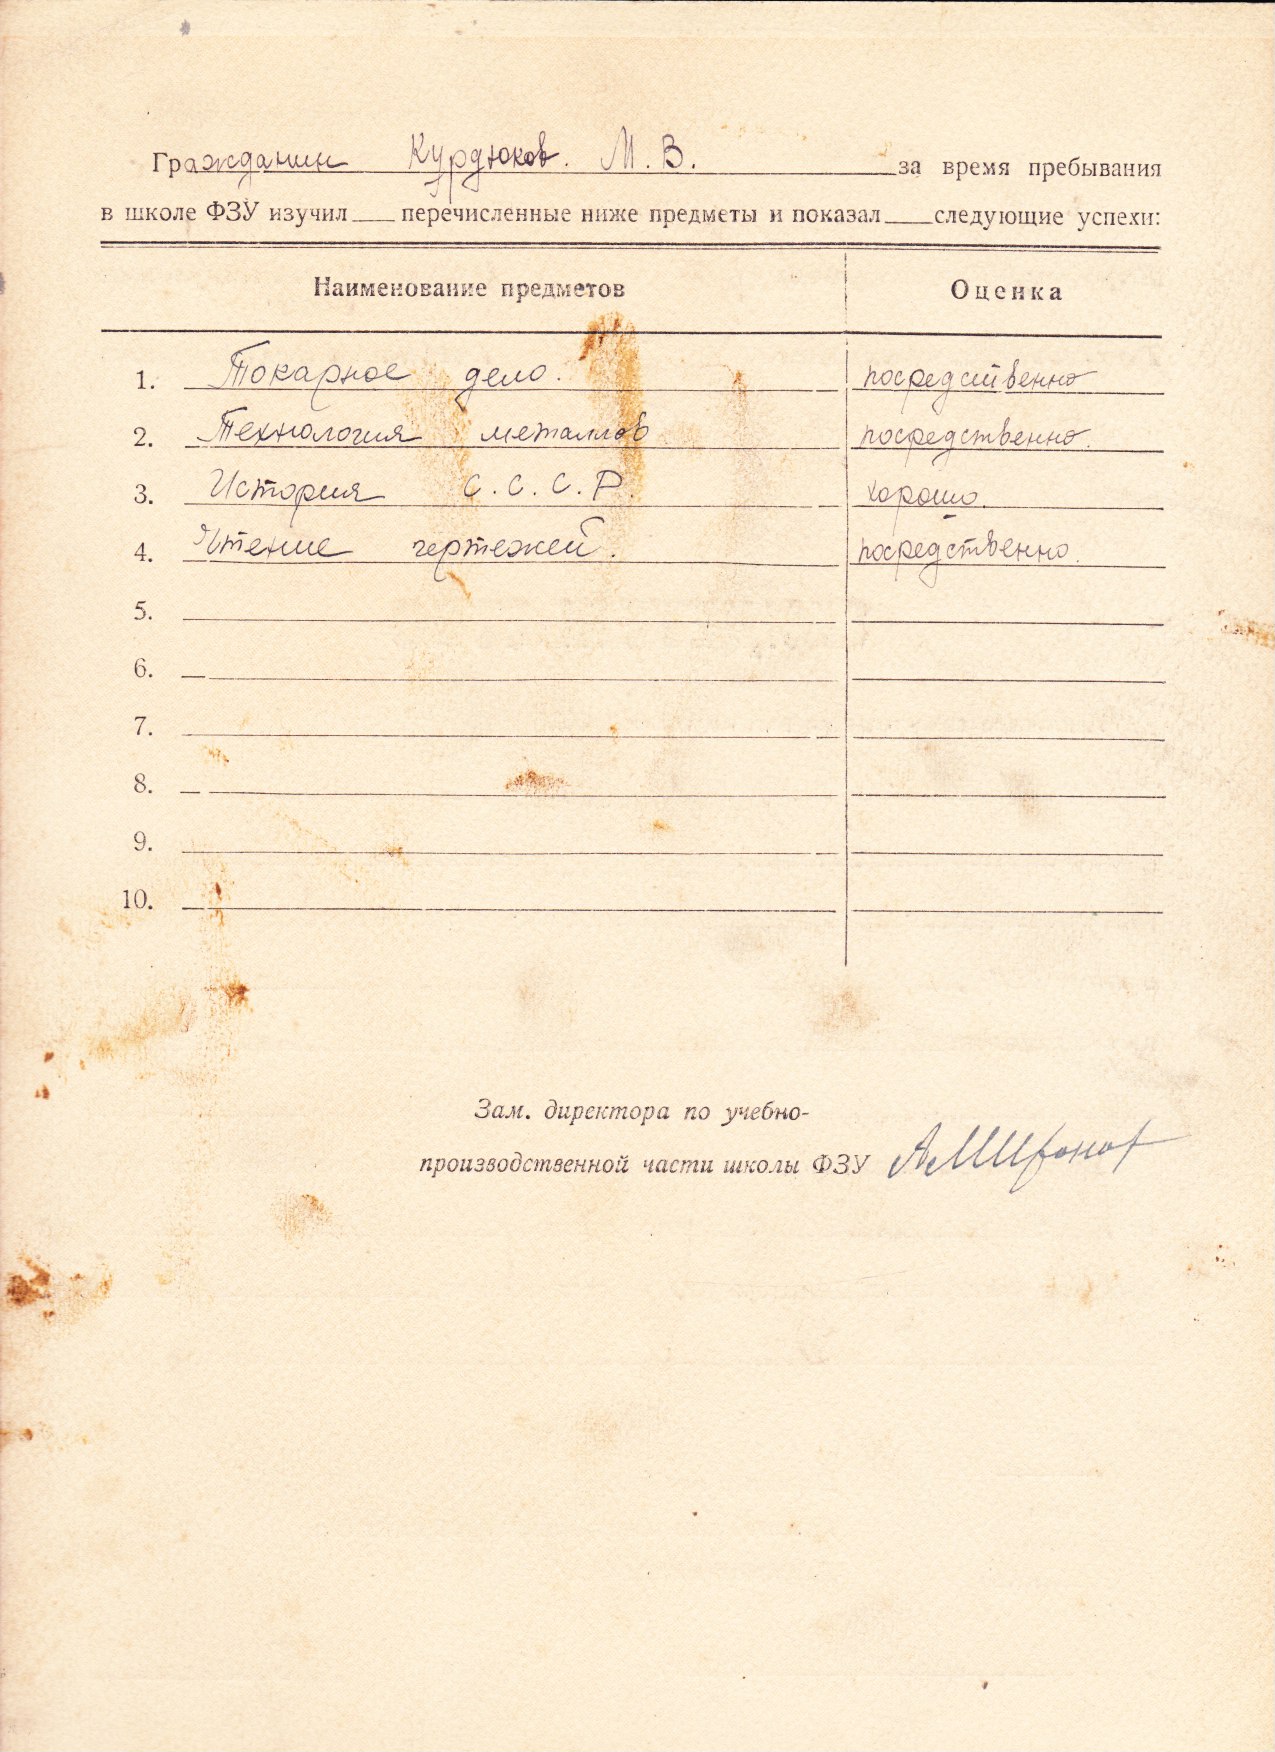 Гражданин Курдюков. М. В. за время пребывания
в школе ФЗУ изучил___ перечисленные ниже предметы и показал___ следующие успехи:
Наименование предметов Оценка
1. Токарное дело. посредственно
2. Технология металлов посредственно.
3. История С. С. С. Р. хорошо.
4. Чтение чертежей. посредственно.
5.
6.
7.
8.
9.
10.
Зам. директора по учебно-
производственной части школы ФЗУ